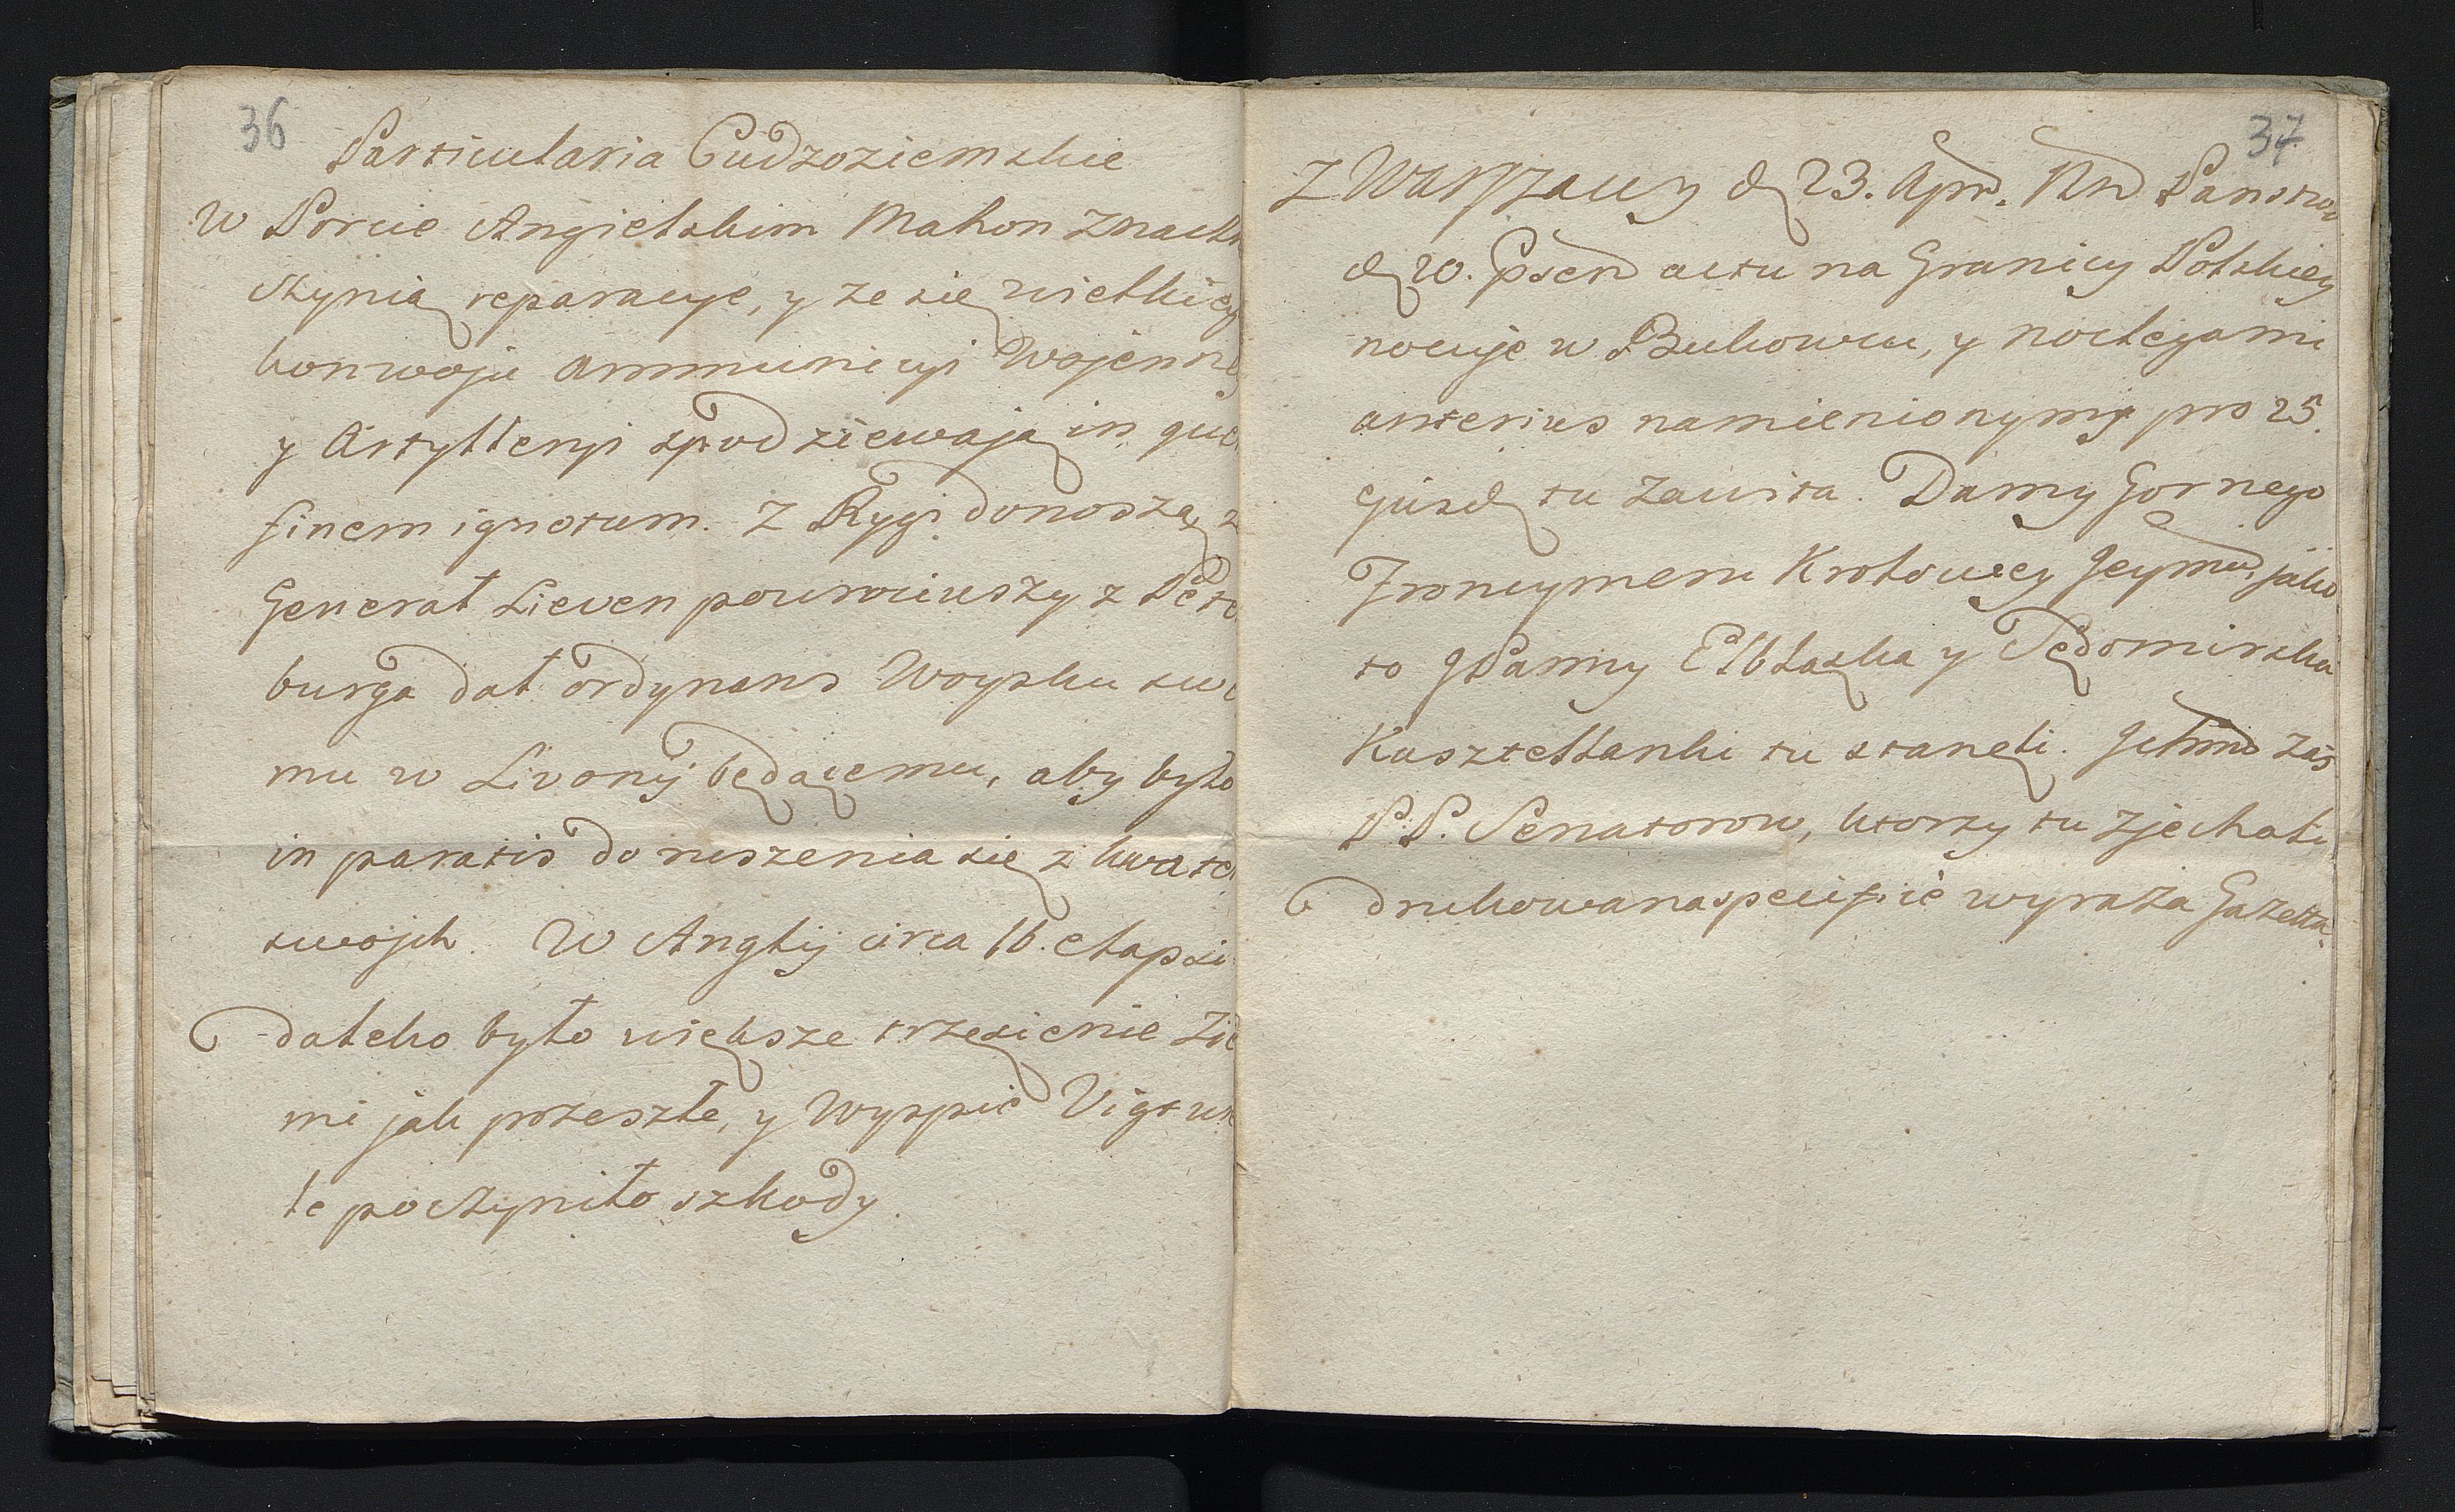 36
Particularia Cudzoziemskie
W Porcie Angielskim Mahon znaczn
czynią reparacye, y ze się wielkiey
konwoju ammunicyi Wojenney
y Artylleryi spodziewają in que
finem ignotum. Z Rygi donoszą, z
Generał Lieven powrociwszy z Pete
burga dał ordynans Woysku swe
mu w Livonij będącemu, aby było
in paratis do ruszenia się z kwater
swojch. W Anglij circa 16. elapsi
daleko było większe trzęsięnie Zie
mi jak przeszłe, y Wyspie Vigt wie
le poczyniło szkody.
37
Z Warszawy d 23. Apr. NN Panstwo
d 20. psen actu na Granicy Polskiey
nocuje w Bukowcu, y noclegami
anterius namienionymi pro 25.
ejusd tu zawita. Damy Gornego
Fraucymeru Krolowey Jeymci, jako
to JPanny Elbląska y Sędomirska
Kasztellanki tu stanęli. Jchmć zaś
P.P. Senatorow, ktorzy tu zjechali
drukowana specifice wyraża Gazetta.